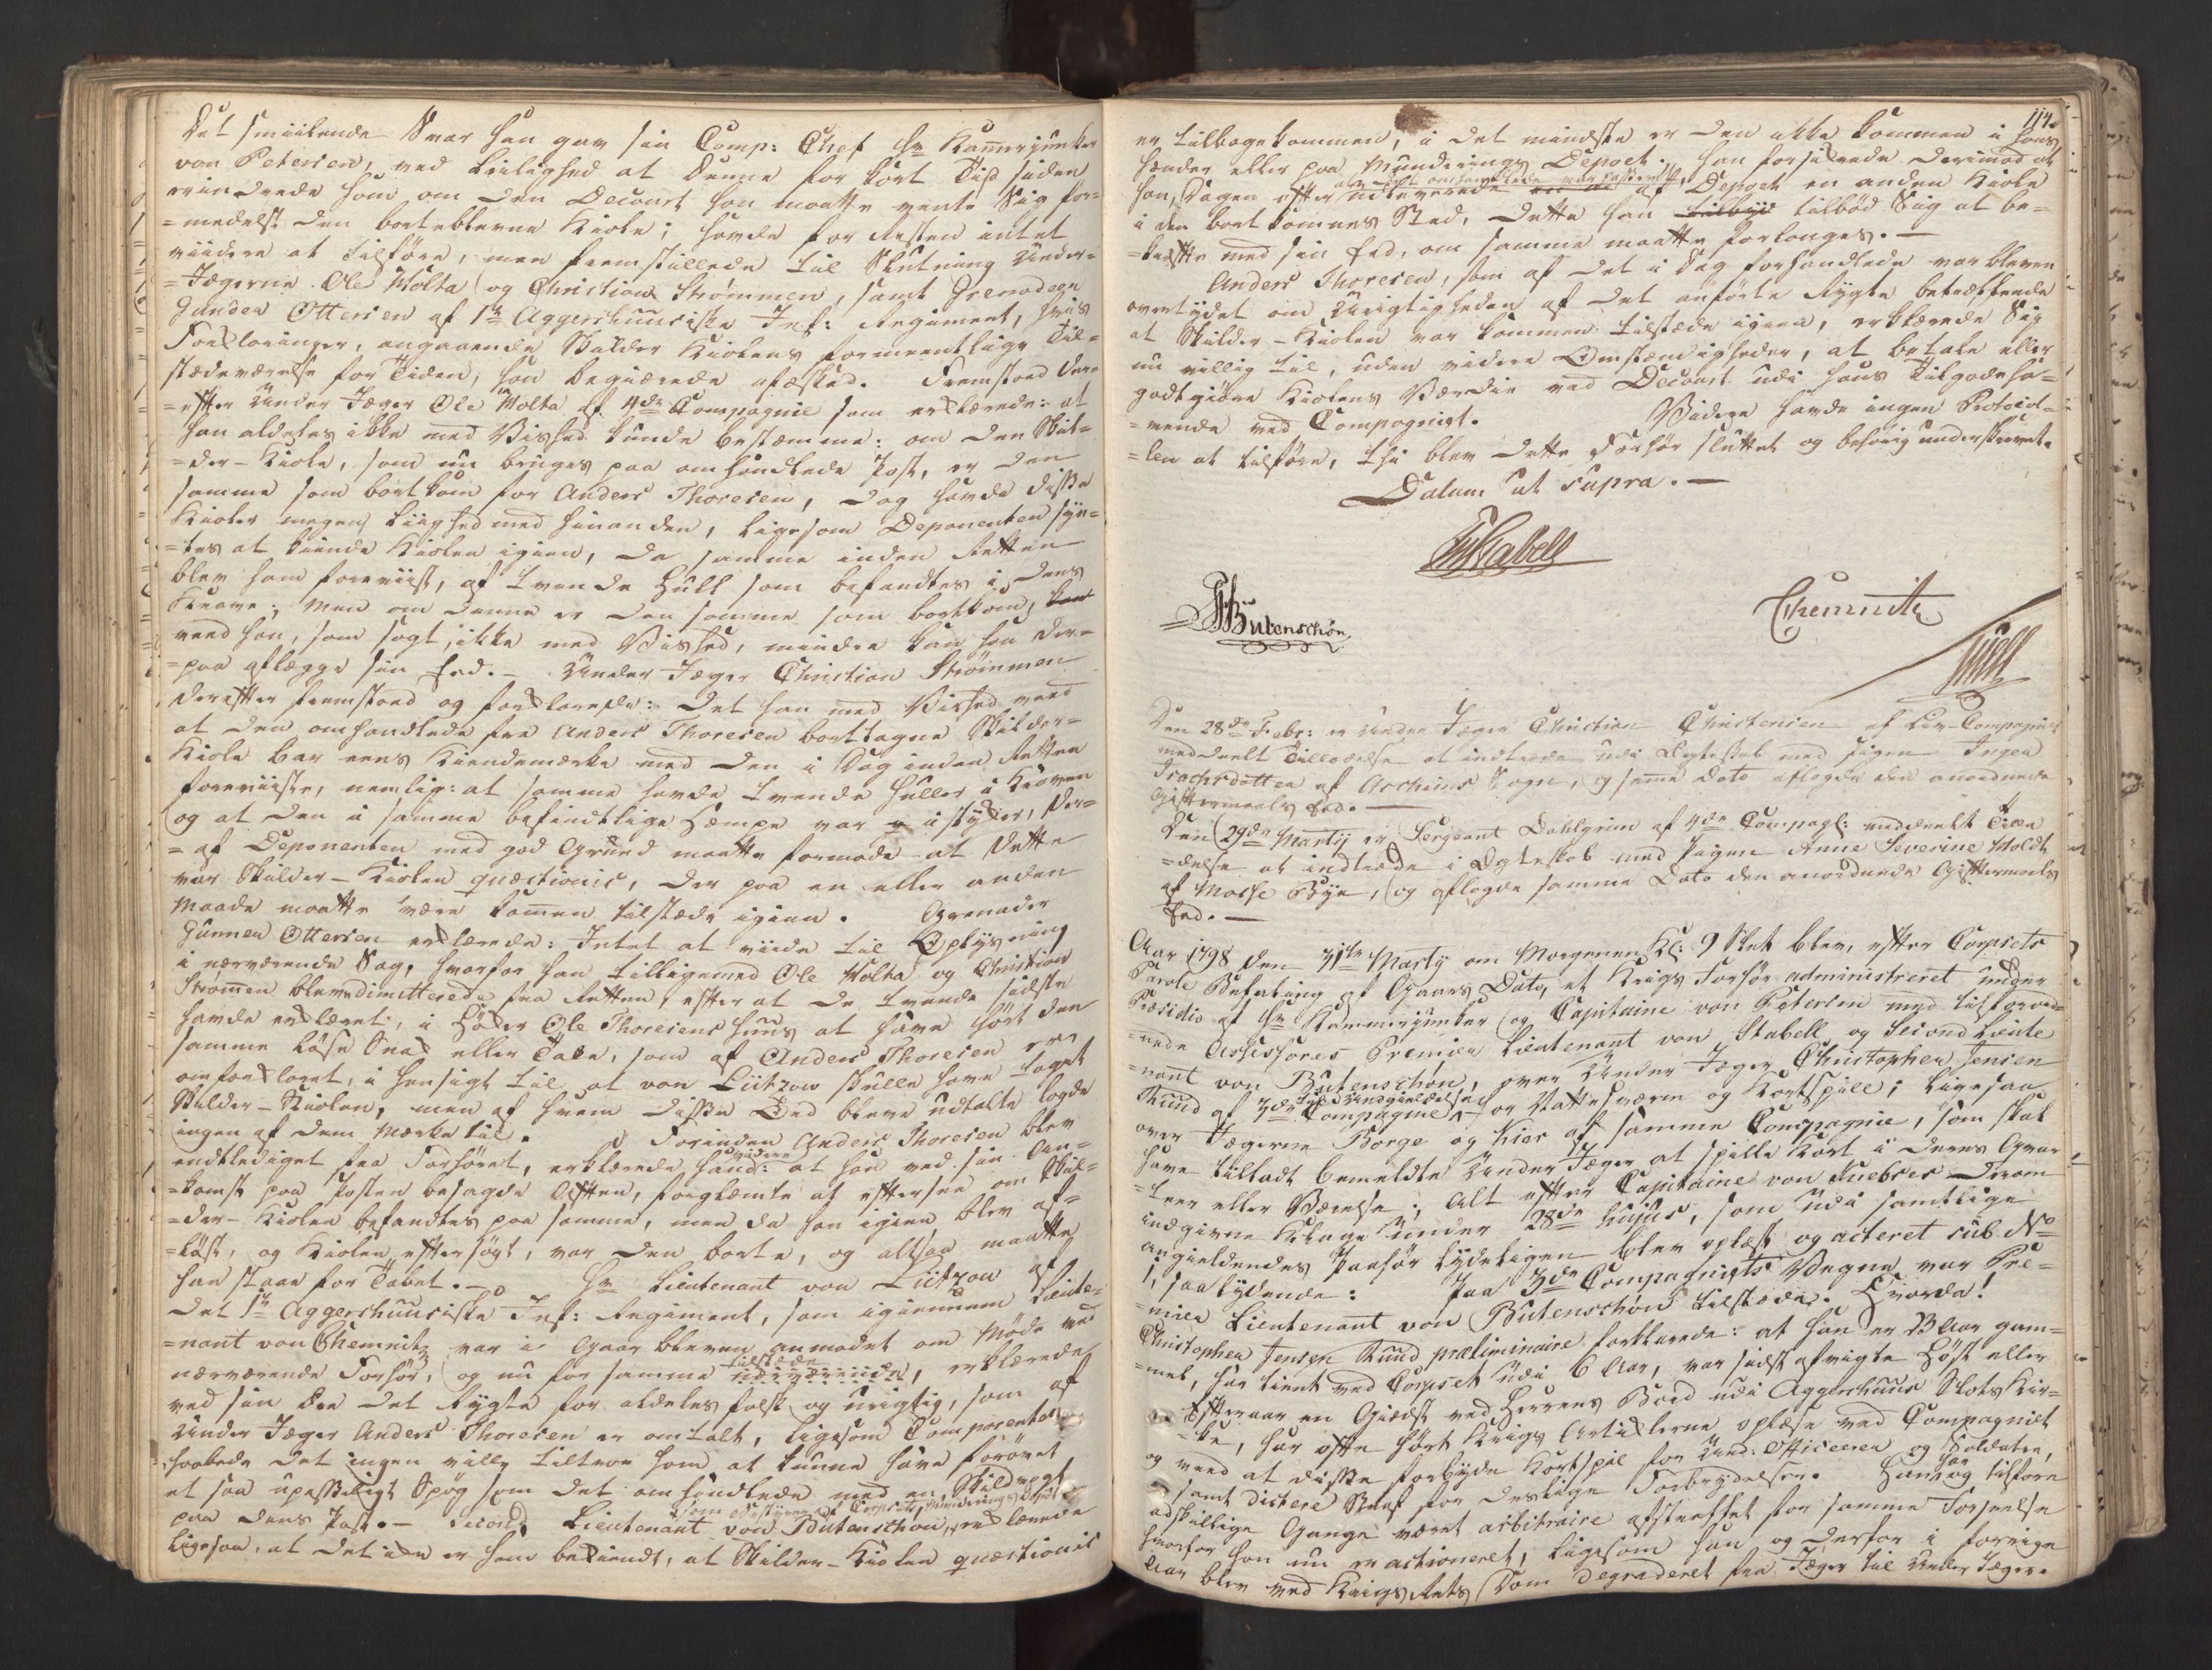 Det smiilende Svar han gav sin Comp: Chef Hr Kammerjunker
von Petersen, ved Leilighed at denne for kort Tid siden
erindrede ham om den Decourt han maatte vente Sig for-
=medelst den borteblevne Kiole; havde for Resten intet
viidere at tilføre, men fremstillede til Slutning Under-
=Jægerne Ole Molta og Christian Strømmen, samt Grenadeer
Gunder Ottersen af 1te Aggershuusiske Inf: Regiment, hvis
Forklaringer, angaaende Skilder Kiolens formeentlige Til-
stædeværelse for Tiden, han begiærede afæsked. Fremstoed der-
=efter Under Jæger Ole Molta af 4de Compagnie som erklærede: at
han aldeles ikke med Vished kunde bestemme: om den Skil-
=der-Kiole, som nu bruges paa omhandlede Post, er den
samme som bortkom for Anders Thoresen, dog havde disse
Kioler megen Liighed med hinanden, ligesom Deponenten syn-
=tes at kiende Kiolen igien, da samme inden Retten
blev ham foreviist, af tvende Hull som befandtes i dens
Krave; men om denne er den samme som bortkom,
veed han, som sagt, ikke med Vished, mindre kan han der-
=paa aflægge sin Eed.- Under Jæger Christian Strømmen
derefter fremstoed og forklarede: Det han med Vished veed
at den omhandlede fra Anders Thoresen borttagne Skilder-
Kiole bar eens Kiendemærke med den i Dag inden Retten
foreviiste, nemlig: at samme havde tvende Huller i Kraven
og at den i samme befindtlige Hempe var istykker, der-
=af Deponenten med god Grund maatte formode at dette
var Skilder-Kiolen quæstionis, der paa en eller anden
Maade maatte være kommen tilstæde igien. Grenader
Gunner Ottersen erklærede: Intet at viide til Oplysning
i nærværende Sag, hvorfor han tilligemed Ole Molta og Christian
Strømmen blev dimitterede fra Retten, efter at de tvende sidste
havde erklæret, i Høker Ole Thoresens Huus at have hørt den
samme løse Snak eller Tale, som af Anders Thoresen er
omforklaret, i Hensigt til at von Lützow skulle have taget
Skilder-Kiolen, men af hvem disse Ord bleve udtalte lagde
ingen af dem Mærke til. Forinden Anders Thoresen blev
endtlediget fra Forhøret, erklærede hand: videre at han ved sin An-
=komst paa Posten besagde Aften, forglemte at eftersee om Skil-
=der-Kiolen befandtes paa samme, men da han igien blev af-
=løst, og Kiolen eftersøgt, var den borte, og altsaa maatte
han staae for Tabet.- Hr Lieutenant von Lützow af
det 1te Aggershuusiske Inf: Regiment, som igiennem Lieute-
=nant von Chemnitz var i Gaar bleven anmodet om Møde ved
nærværende Forhør, og nu for samme tilstæde nærværende, erklærede
ved sin Ære det Rygte for aldeles falsk og urigtig, som af
Under Jæger Anders Thoresen er omtalt, ligesom Comparenten
haabede det ingen ville tiltroe ham at kunne have forøvet
et saa upassiligt Spøg som det omhandlede med en Skildvagt
paa dens Post.- Second Lieutenant von Butenschøn, som bestyrer Corpsets Munderings Depot erklærede
ligesaa, at det ikke er ham bekiendt, at Skilder-Kiolen quæstionis
114.
er tilbagekommen, i det mindste er den ikke kommen i hans
Hænder eller paa Munderings Depoet. han forsikrede derimod at
han, Dagen efter at det omhandlede var passeret, udleverede af Depoet en anden Kiole
i den bortkomnes Sted, dette han tilbyd tilbød Sig at be-
=kræfte med sin Eed, om samme maatte forlanges.-
Anders Thoresen, som af det i Dag forhandlede var bleven
overtydet om Urigtigheden af det anførte Rygte betræffende
at Skilder-Kiolen var kommen tilstæde igien, erklærede Sig
nu villig til, uden videre Omstændigheder, at betale eller
godtgiøre Kiolens Værdie ved Decourt udi hans Tilgodeha-
=vende ved Compagniet. Videre havde ingen Protocol-
=len at tilføre, thi blev dette Forhør sluttet og behørig underskrevet.
Datum ut supra.-
Stabell
Butenschøn
Chemnitz
Juell
Den 28de Febr: er Under Jæger Christian Christensen af Liv-Compagniet
meddeelt Tilladelse at indtræde udi Ægteskab med Pigen Inger
Isachsdatter af Archers Sogn, og samme dato aflagde den anordnede
Giftermaals Eed.-
Den 29de Martij er Sergeant Dahlgrün af 4de Compagl: meddeelt Tilla
=delse at indtræde i Ægteskab med Pigen Anne Severine Moldt
af Mosse Bye, og aflagde samme Dato den anordnede Giftermaals
Eed.-
Aar 1798 den 31te Martij om Morgenen Kl: 9 Slet blev, efter Corpsets
Parole Befaling af Gaars Dato, et Krigs Forhør administreret under
Præsidio af Hr Kammerjunker og Capitaine von Petersen med tilforord-
=nede Assessores Premier Lieutenant von Stabell og Second Lieute
=nant von Butenschøn, over Under Jæger Christopher Jensen
Ruud af 3de Compagnie til Undgieldelse for Nattesværm og Kortspill; ligesaa
over Jægerne Borge og Kier af samme Compagnie, som skal
have tilladt bemeldte Under Jæger at spille Kort i deres Qvar
=teer eller Værelse; Alt efter Capitaine von Huebsers derom
indgivne Klage under 28de hujus, som udi samtlige
angieldendes Paahør lydeligen blev oplæst og acteret sub No
1, saa lydende: Paa 3de Compagniets Vegne var Pre-
=mier Lieutenant von Butenschøn tilstæde.
Christopher Jensen Ruud præliminaire forklarede: at han er 23 Aar gam-
=mel, har tient ved Corpset udi 6 Aar, var sidst afvigte Høst eller
Efteraar en Giæst ved Herrens Bord udi Aggershuus Slots Kir-
=ke, har ofte hørt Krigs Artiklerne oplæse ved Compagniet
og veed at disse forbyde Kortspil for Und: Officerer og Soldater,
samt dictere Straf for deslige Forbrydelser. Han har og tilforn
adskillige Gange været arbitraire afstraffet for samme Forseelse
hvorfor han nu er actioneret, ligesom han og derfor i forrige
Aar blev ved Krigs Rets Dom degraderet fra Jæger til Under Jæger.